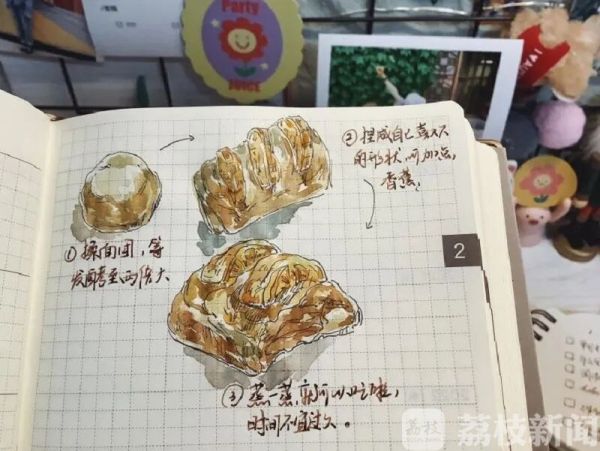 Party
JUICE
②捏成自己喜欢
的形状,可加点
香蕉;
①揉面团,等
发酵至两倍大
2
③蒸一蒸,就可以吃啦,
时间不宜过久。
荔枝
荔枝新闻